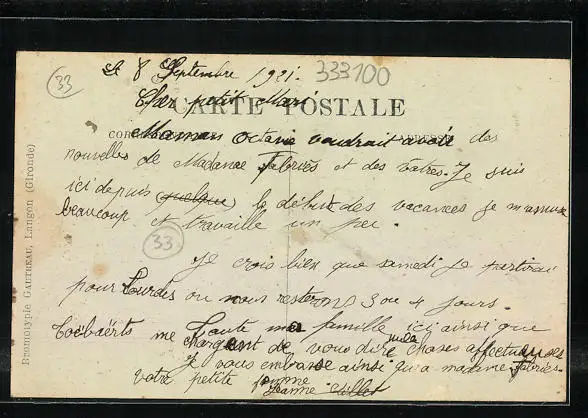 33
Le 8 Septembre 1921.
333100
CARTE POSTALE
Cher petit Mari
Maman Octavie voudrait avoir des
nouvelles de Madame Fabriès et des vôtres. Je suis
ici depuis quelque le début des vacances je m'amuse
beaucoup et travaille un peu.
33
Je crois bien que samedi je partirai
pour Lourdes où nous resterons 3 ou 4 jours.
Toute ma famille ici ainsi que
me chargent de vous dire mille choses affectueuses
Je vous embrasse ainsi qu'a mamie Fabriès.
votre petite femme
Jeanne
Bromotypie GAUTREAU, Langon (Gironde)